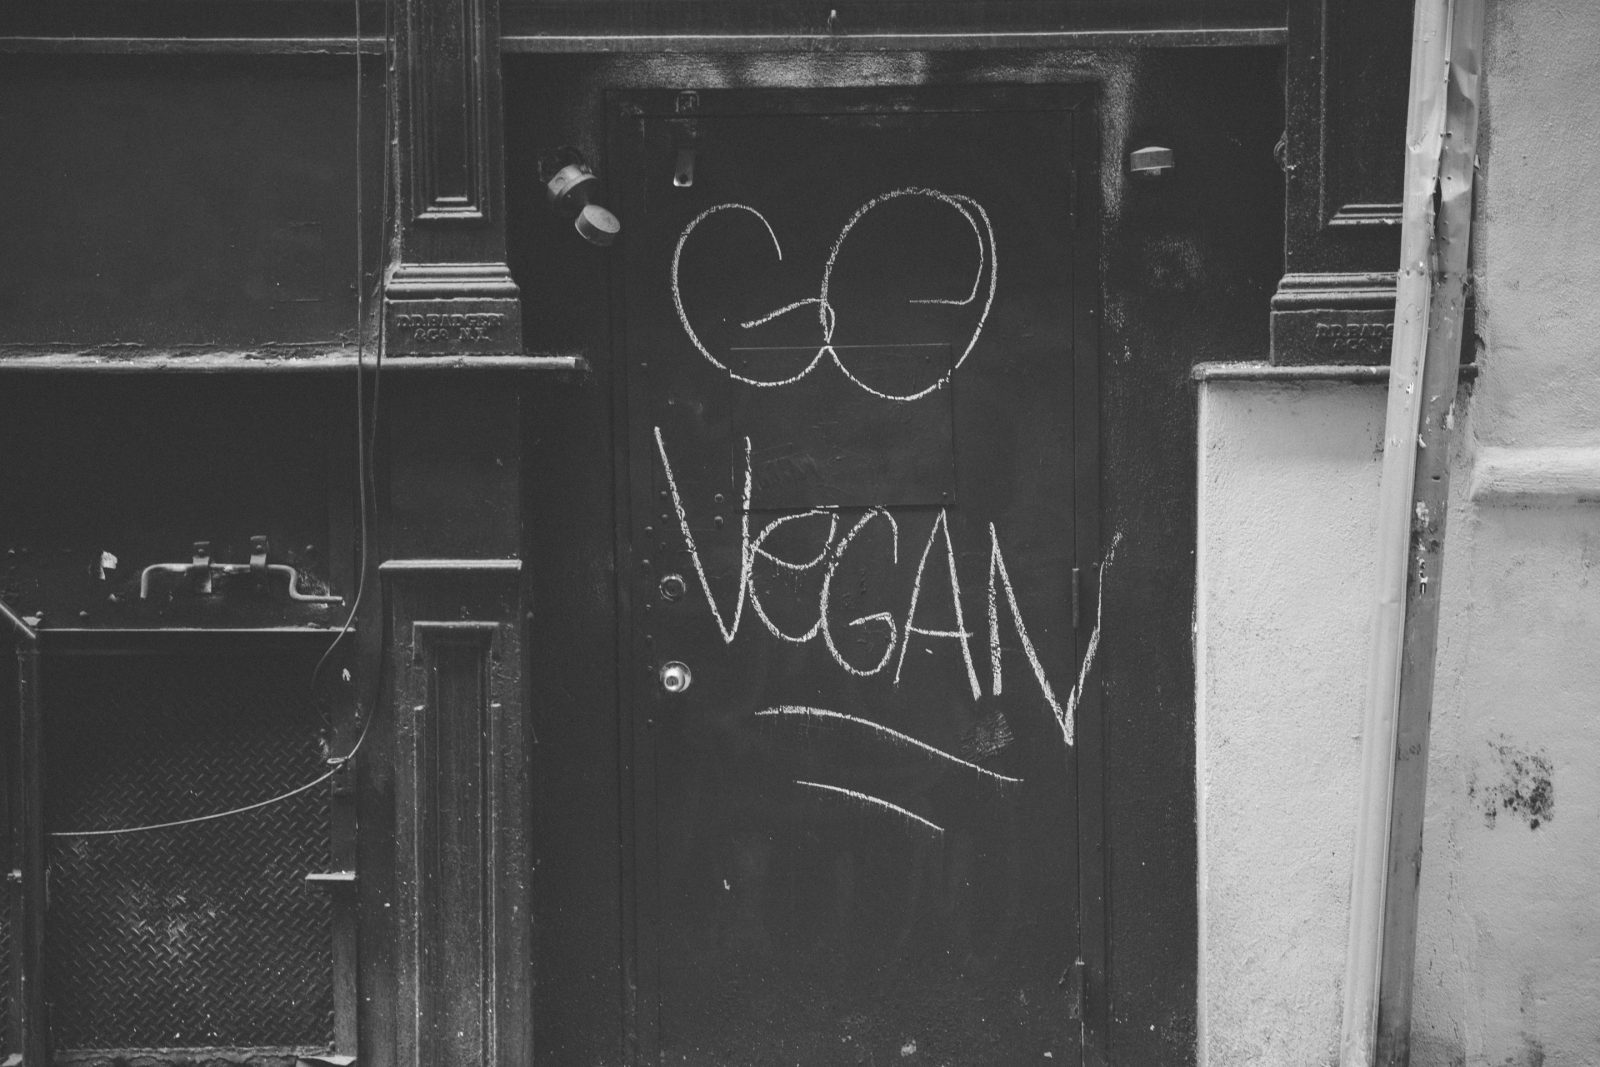 GO
VeGAN
D.D. BADGER
& CO N.Y.
D.D. BADG
& CO N.Y.